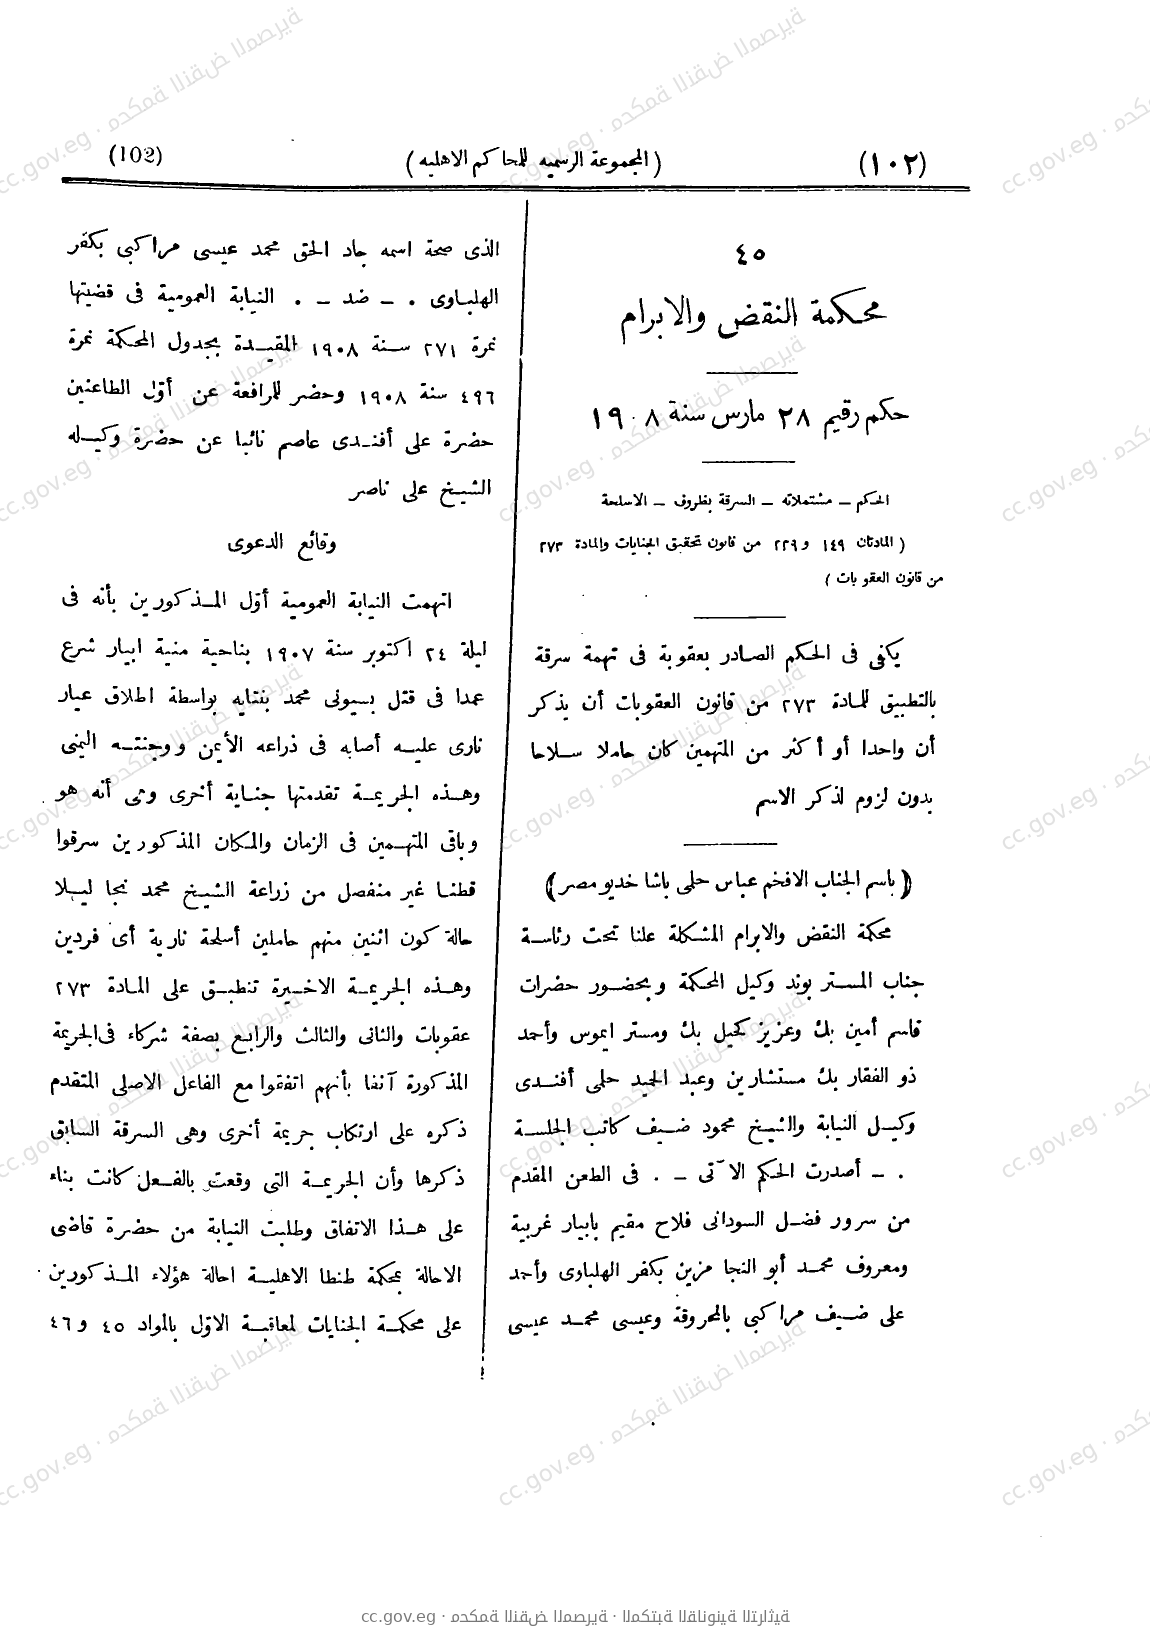 (١٠٢)
(المجموعة الرسميه للمحاكم الاهليه)
(102)
٤٥
محكمة النقض والابرام
حكم رقيم ٢٨ مارس سنة ١٩٠٨
الحكم – مشتملاته – السرقة بظروف – الاسلحة
(المادتان ١٤٩ و٢٢٩ من قانون تحقيق الجنايات والمادة ٢٧٣
من قانون العقوبات)
يكفى فى الحكم الصادر بعقوبة فى تهمة سرقة
بالتطبيق للمادة ٢٧٣ من قانون العقوبات أن يذكر
أن واحدا أو أكثر من المتهمين كان حاملا سلاحا
بدون لزوم لذكر الاسم
(باسم الجناب الافخم عباس حلمى باشا خديو مصر)
محكمة النقض والابرام المشكلة علنا تحت رئاسة
جناب المستر بوند وكيل المحكمة وبحضور حضرات
قاسم أمين بك وعزيز كحيل بك ومستر ايموس وأحمد
ذو الفقار بك مستشارين وعبد الحميد حلمى أفندى
وكيل النيابة والشيخ محمود ضيف كاتب الجلسة
. – أصدرت الحكم الآتى – . فى الطعن المقدم
من سرور فضل السودانى فلاح مقيم بابيار غربية
ومعروف محمد أبو النجا مزين بكفر الهلباوى وأحمد
على ضيف مراكبى بالمحروقة وعيسى محمد عيسى
الذى صحة اسمه جاد الحق محمد عيسى مراكبى بكفر
الهلباوى . – ضد – . النيابة العمومية فى قضيتها
نمرة ٢٧١ سنة ١٩٠٨ المقيدة بجدول المحكمة نمرة
٤٩٦ سنة ١٩٠٨ وحضر للمرافعة عن أوّل الطاعنين
حضرة على أفندى عاصم نائبا عن حضرة وكيله
الشيخ على ناصر
وقائع الدعوى
اتهمت النيابة العمومية أوّل المذكورين بأنه فى
ليلة ٢٤ اكتوبر سنة ١٩٠٧ بناحية منية ابيار شرع
عمدا فى قتل بسيونى محمد بنتايه بواسطة اطلاق عيار
نارى عليه أصابه فى ذراعه الأيمن ووجنته اليمنى
وهذه الجريمة تقدمتها جناية أخرى وهى أنه هو
وباقى المتهمين فى الزمان والمكان المذكورين سرقوا
قطنا غير منفصل من زراعة الشيخ محمد نجا ليلا
حالة كون اثنين منهم حاملين أسلحة نارية أى فردين
وهذه الجريمة الاخيرة تنطبق على المادة ٢٧٣
عقوبات والثانى والثالث والرابع بصفة شركاء فى الجريمة
المذكورة آنفا بأنهم اتفقوا مع الفاعل الاصلى المتقدم
ذكره على ارتكاب جريمة أخرى وهى السرقة السابق
ذكرها وأن الجريمة التى وقعت بالفعل كانت بناء
على هذا الاتفاق وطلبت النيابة من حضرة قاضى
الاحالة بمحكمة طنطا الاهلية احالة هؤلاء المذكورين
على محكمة الجنايات لمعاقبة الاوّل بالمواد ٤٥ و٤٦
cc.gov.eg · محكمة النقض المصرية · المكتبة القانونية التراثية